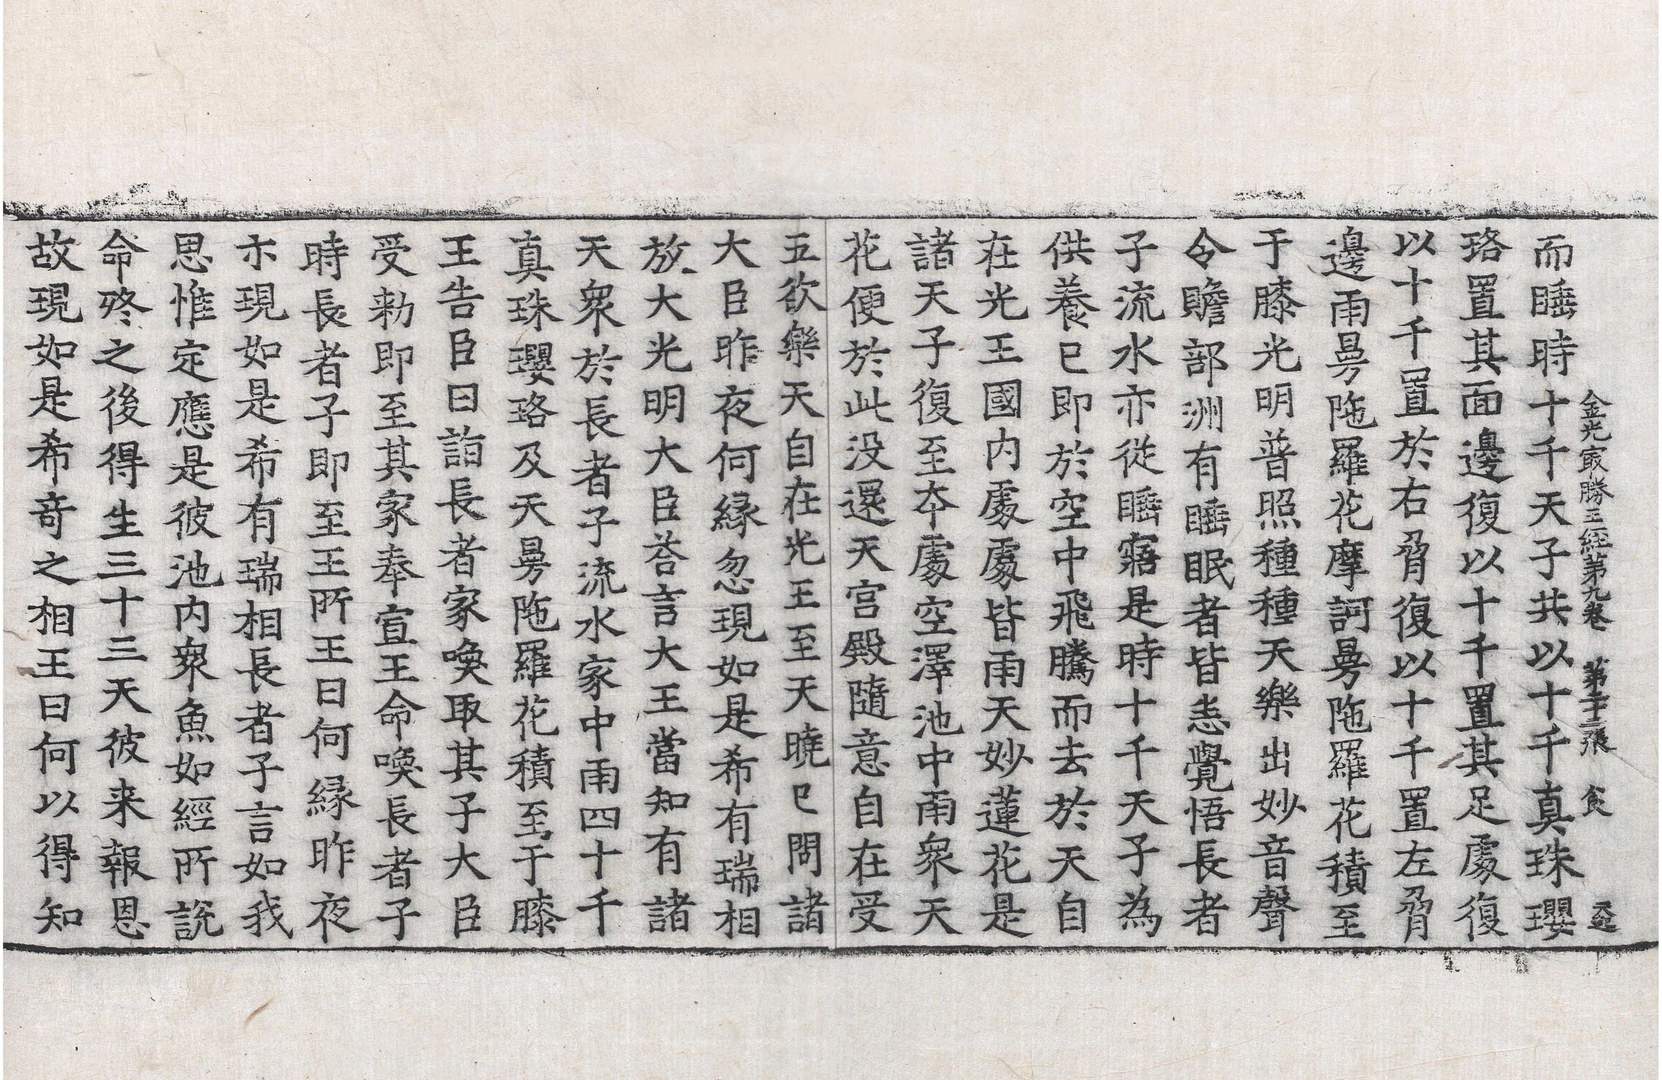 金光㝡勝王經第九卷 第十三張 食
而睡時十千天子共以十千真珠瓔
珞置其面邊復以十千置其足處復
以十千置於右脅復以十千置左脅
邊雨曼陁羅花摩訶曼陁羅花積至
于膝光明普照種種天樂出妙音聲
令贍部洲有睡眠者皆悉覺悟長者
子流水亦從睡寤是時十千天子為
供養已即於空中飛騰而去於天自
在光王國内處處皆雨天妙蓮花是
諸天子復至夲處空澤池中雨衆天
花便於此没還天宮殿隨意自在受
五欲樂天自在光王至天曉已問諸
大臣昨夜何緣忽現如是希有瑞相
放大光明大臣荅言大王當知有諸
天衆於長者子流水家中雨四十千
真珠瓔珞及天曼陁羅花積至于膝
王告臣曰詣長者家喚取其子大臣
受勑即至其家奉宣王命喚長者子
時長者子即至王所王曰何緣昨夜
示現如是希有瑞相長者子言如我
思惟定應是彼池内衆魚如經所說
命終之後得生三十三天彼来報恩
故現如是希竒之相王曰何以得知